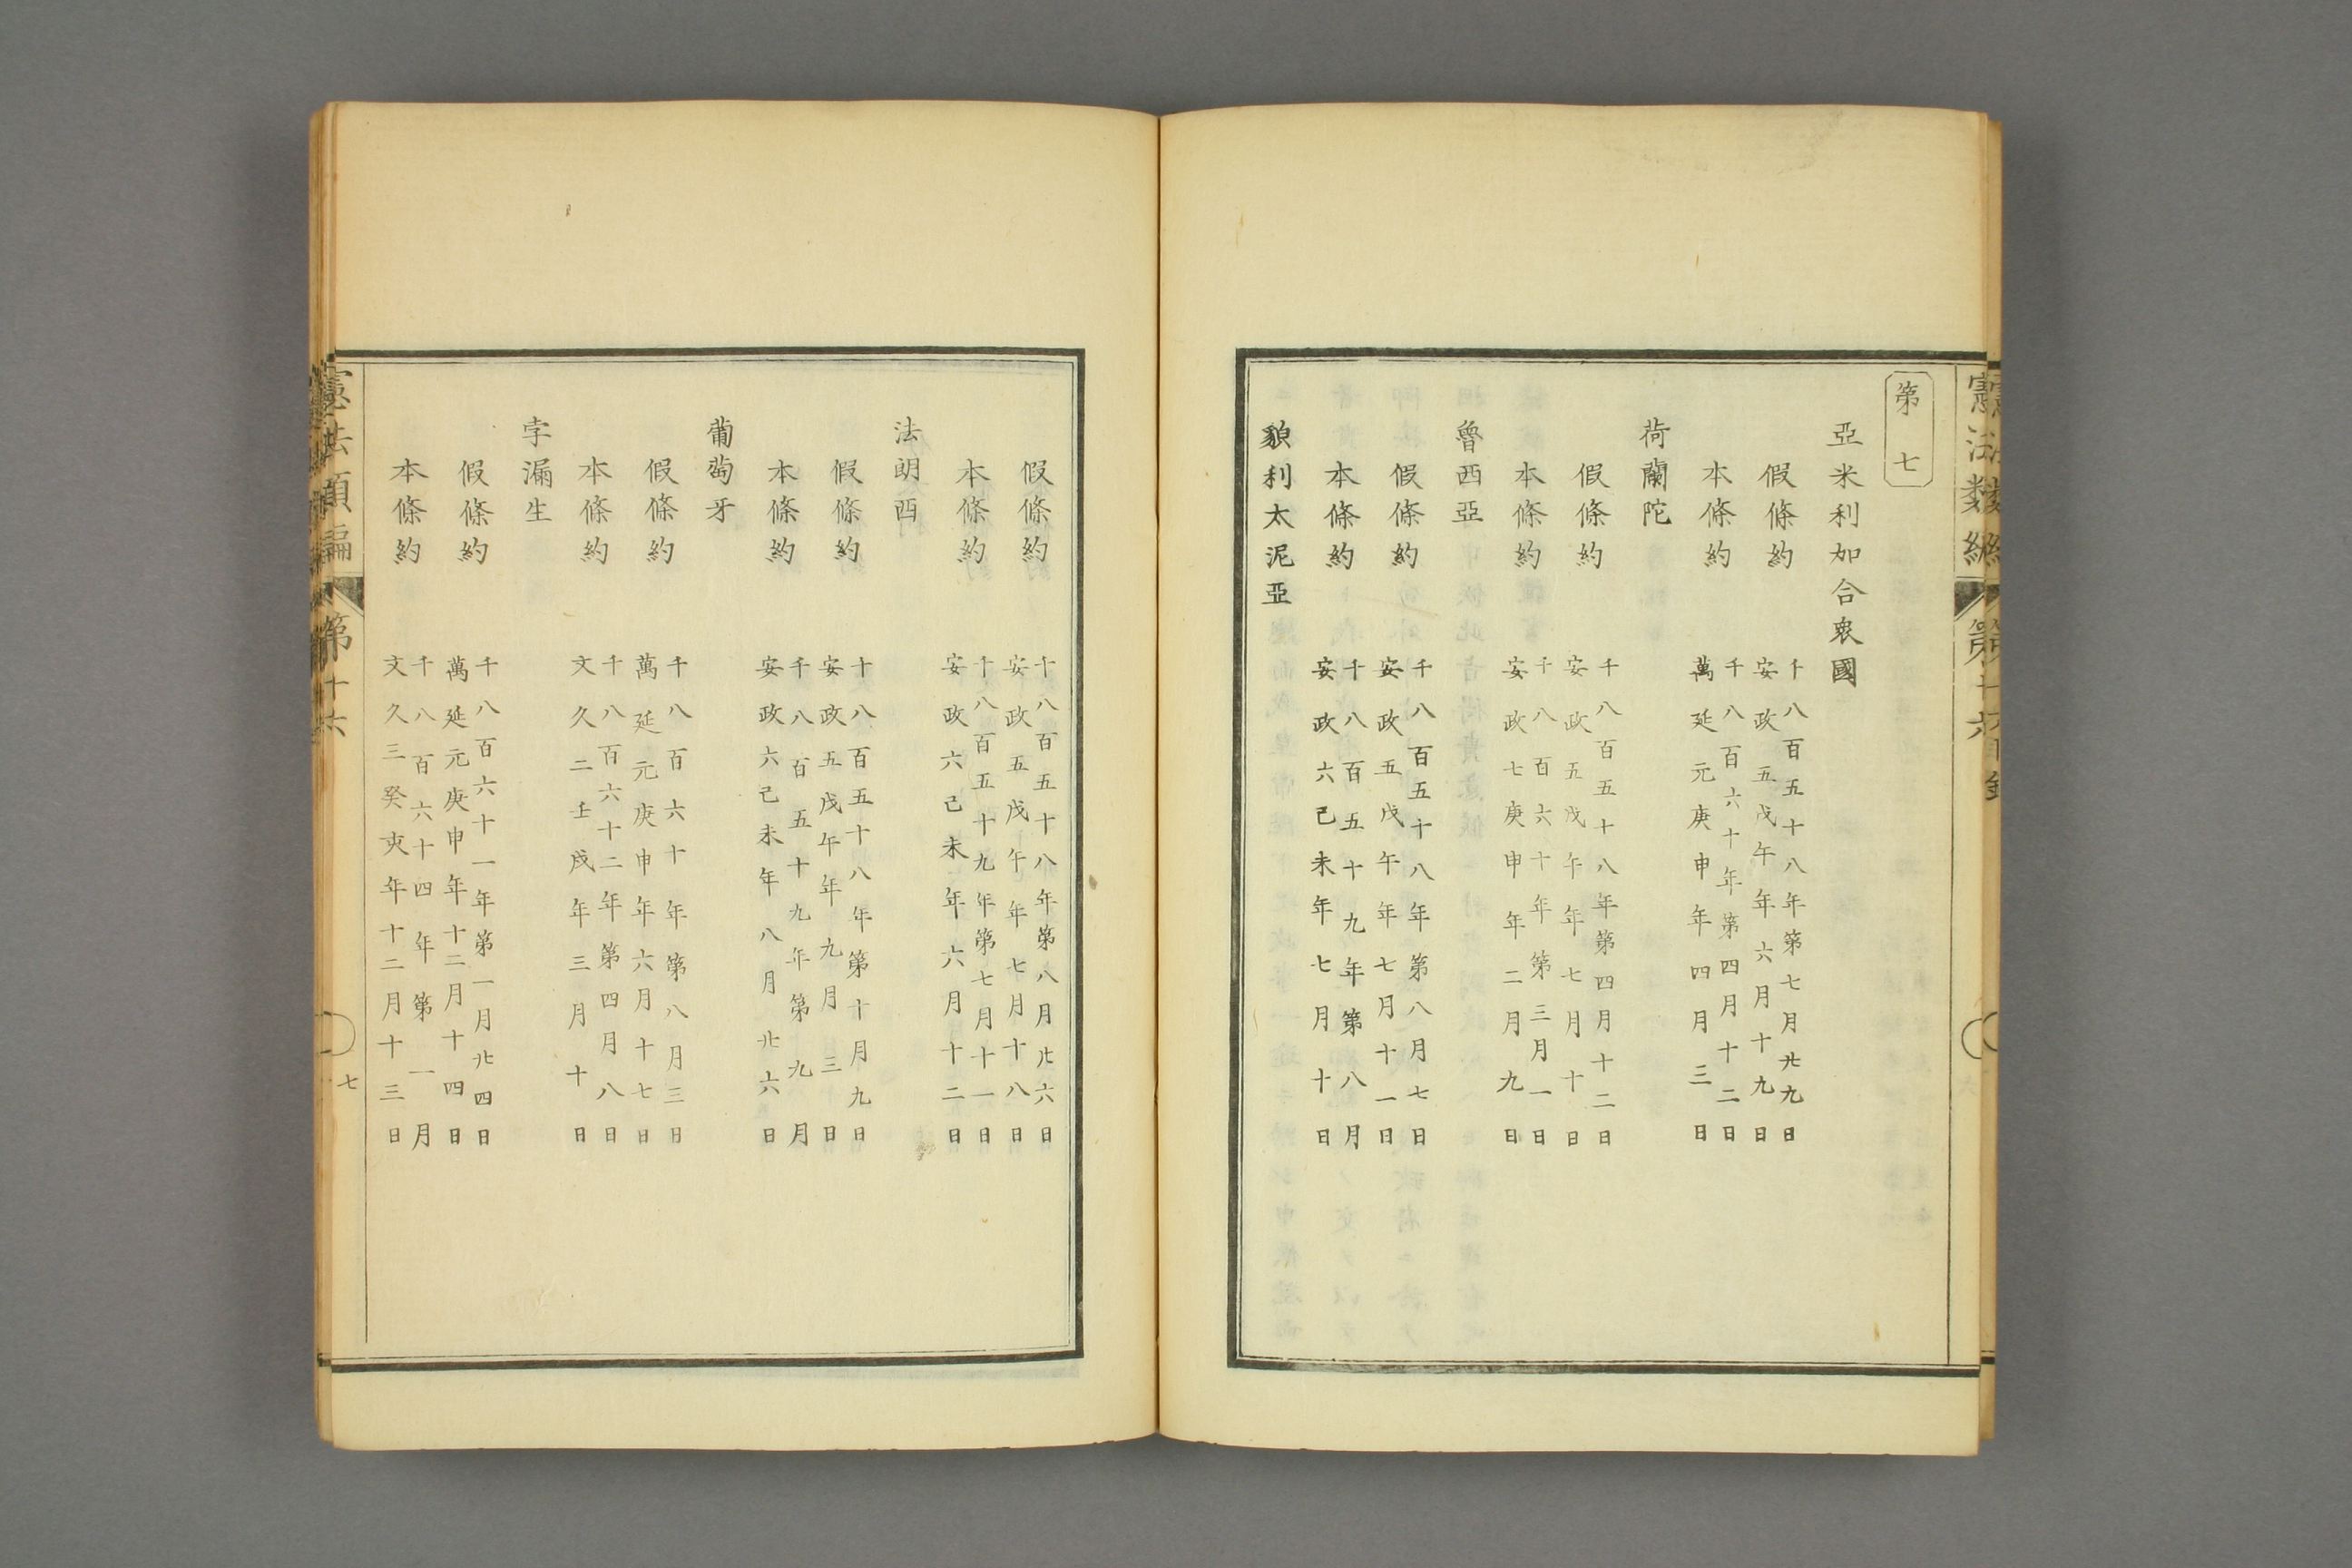 第七
亞米利加合衆國
假條約
千八百五十八年第七月廿九日
安政五戊午年六月十九日
本條約
千八百六十年第四月十二日
萬延元庚申年四月三日
荷蘭陀
假條約
千八百五十八年第四月十二日
安政五戊午年七月十日
本條約
千八百六十年第三月一日
安政七庚申年二月九日
魯西亞
假條約
千八百五十八年第八月七日
安政五戊午年七月十一日
本條約
千八百五十九年第八月
安政六己未年七月十日
貌利太泥亞
假條約
千八百五十八年第八月廿六日
安政五戊午年七月十八日
本條約
千八百五十九年第七月十一日
安政六己未年六月十二日
法朗西
假條約
千八百五十八年第十月九日
安政五戊午年九月三日
本條約
千八百五十九年第九月
安政六己未年八月廿六日
葡萄牙
假條約
千八百六十年第八月三日
萬延元庚申年六月十七日
本條約
千八百六十二年第四月八日
文久二壬戌年三月十日
孛漏生
假條約
千八百六十一年第一月廿四日
萬延元庚申年十二月十四日
本條約
千八百六十四年第一月
文久三癸亥年十二月十三日
憲法類編 第十六
七